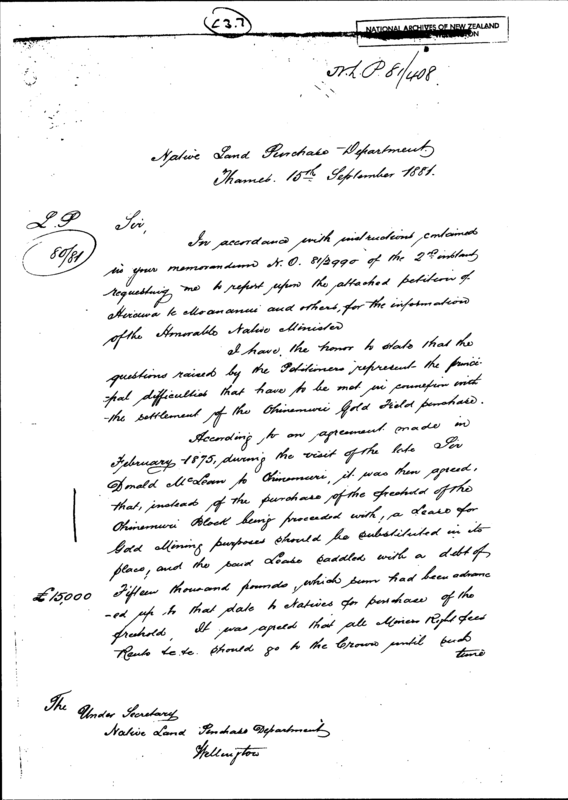 C3.7
NATIONAL ARCHIVES OF NEW ZEALAND
N.L.P. 81/408
Native Land Purchase Department
Thames. 15th September 1881.
L.P
80/81
Sir,
In accordance with instructions contained
in your memorandum N.O. 81/2990 of the 2nd instant
requesting me to report upon the attached petition of
te Moananui and others, for the information
of the Honorable Native Minister
I have, the honor to state that the
questions raised by the Petitioners represent the princi
-pal difficulties that have to be met in connexion with
the settlement of the Ohinemuri Gold Field purchase.
According to an agreement made in
February 1875, during the visit of the late Sir
Donald McLean to Ohinemuri, it was then agreed,
that, instead of the purchase of the freehold of the
Ohinemuri Block being proceeded with, a Lease for
Gold Mining purposes should be substituted in its
place, and the said Lease saddled with a debt of
£15,000
Fifteen thousand pounds, which sum had been advanc
-ed up to that date to Natives for purchase of the
freehold. It was agreed that all Miners Right fees
Rents &c &c. should go to the Crown until such
time
The Under Secretary
Native Land Purchase Department
Wellington